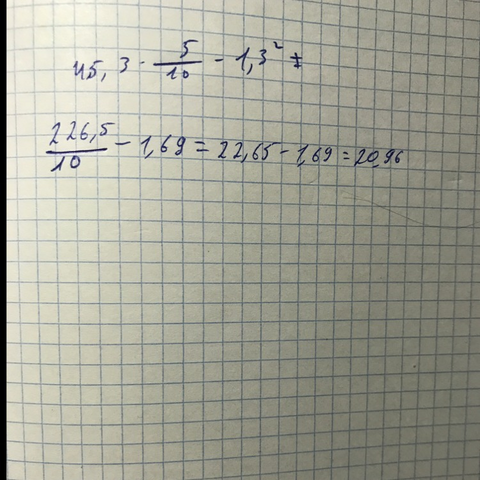 45,3 · 5/10 - 1,3² =
226,5/10 - 1,69 = 22,65 - 1,69 = 20,96